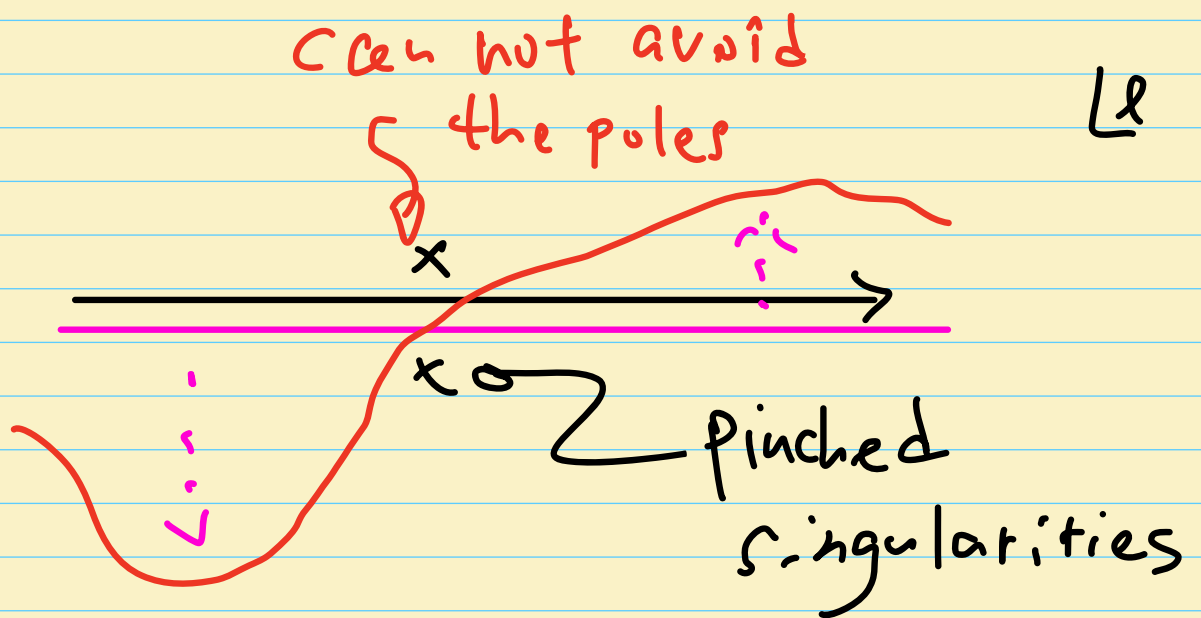 can not avoid
the poles
l
x
x
pinched
singularities